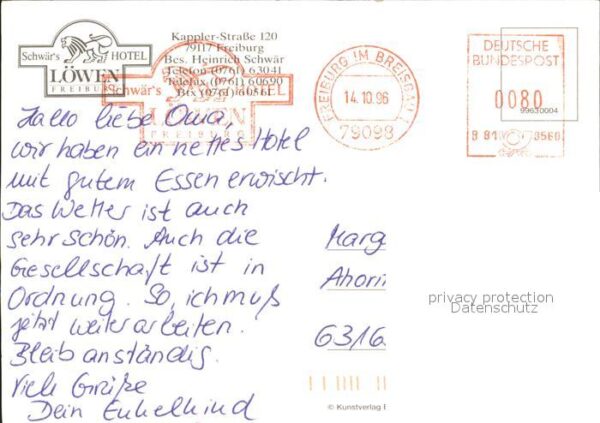 Schwär's HOTEL
LÖWEN
FREIBURG
Kappler-Straße 120
79117 Freiburg
Bes. Heinrich Schwär
Telefon (0761) 63041
Telefax (0761) 60690
Btx (0761) 60561
Schwär's HOTEL
LÖWEN
FREIBURG
FREIBURG IM BREISGAU 1
14.10.96
79098
DEUTSCHE
BUNDESPOST
0080
99630004
Hallo liebe Oma,
wir haben ein nettes Hotel
mit gutem Essen erwischt.
Das Wetter ist auch
sehr schön. Auch die
Gesellschaft ist in
Ordnung. So, ich muß
jetzt weiterarbeiten.
Bleib anständig.
Viele Grüße
Dein Enkelkind
Marg
Ahorn
6316
privacy protection
Datenschutz
© Kunstverlag